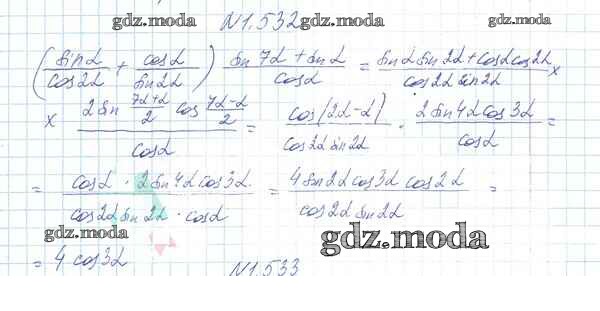 gdz.moda N1.532 gdz.moda gdz.moda
(sinα/cos2α + cosα/sin2α) (sin 7α + sin α)/cosα = (sinα sin 2α + cosα cos 2α)/(cos2α sin2α) ×
× (2 sin (7α+α)/2 cos (7α-α)/2)/cosα = cos(2α-α)/(cos2α sin2α) · (2 sin4α cos3α)/cosα =
= (cosα · 2 sin4α cos3α)/(cos2α sin2α · cosα) = (4 sin2α cos3α cos2α)/(cos2α sin2α) =
gdz.moda gdz.moda
= 4 cos3α
N1.533